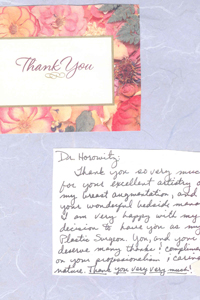 Thank You
Dr. Horowitz:
Thank you so very much
for your excellent artistry of
my breast augmentation, and
your wonderful bedside mann
I am very happy with my
decision to have you as my
Plastic Surgeon. You, and your
deserve many thanks & complimen
on your professionalism & caring
nature. Thank you very very much!